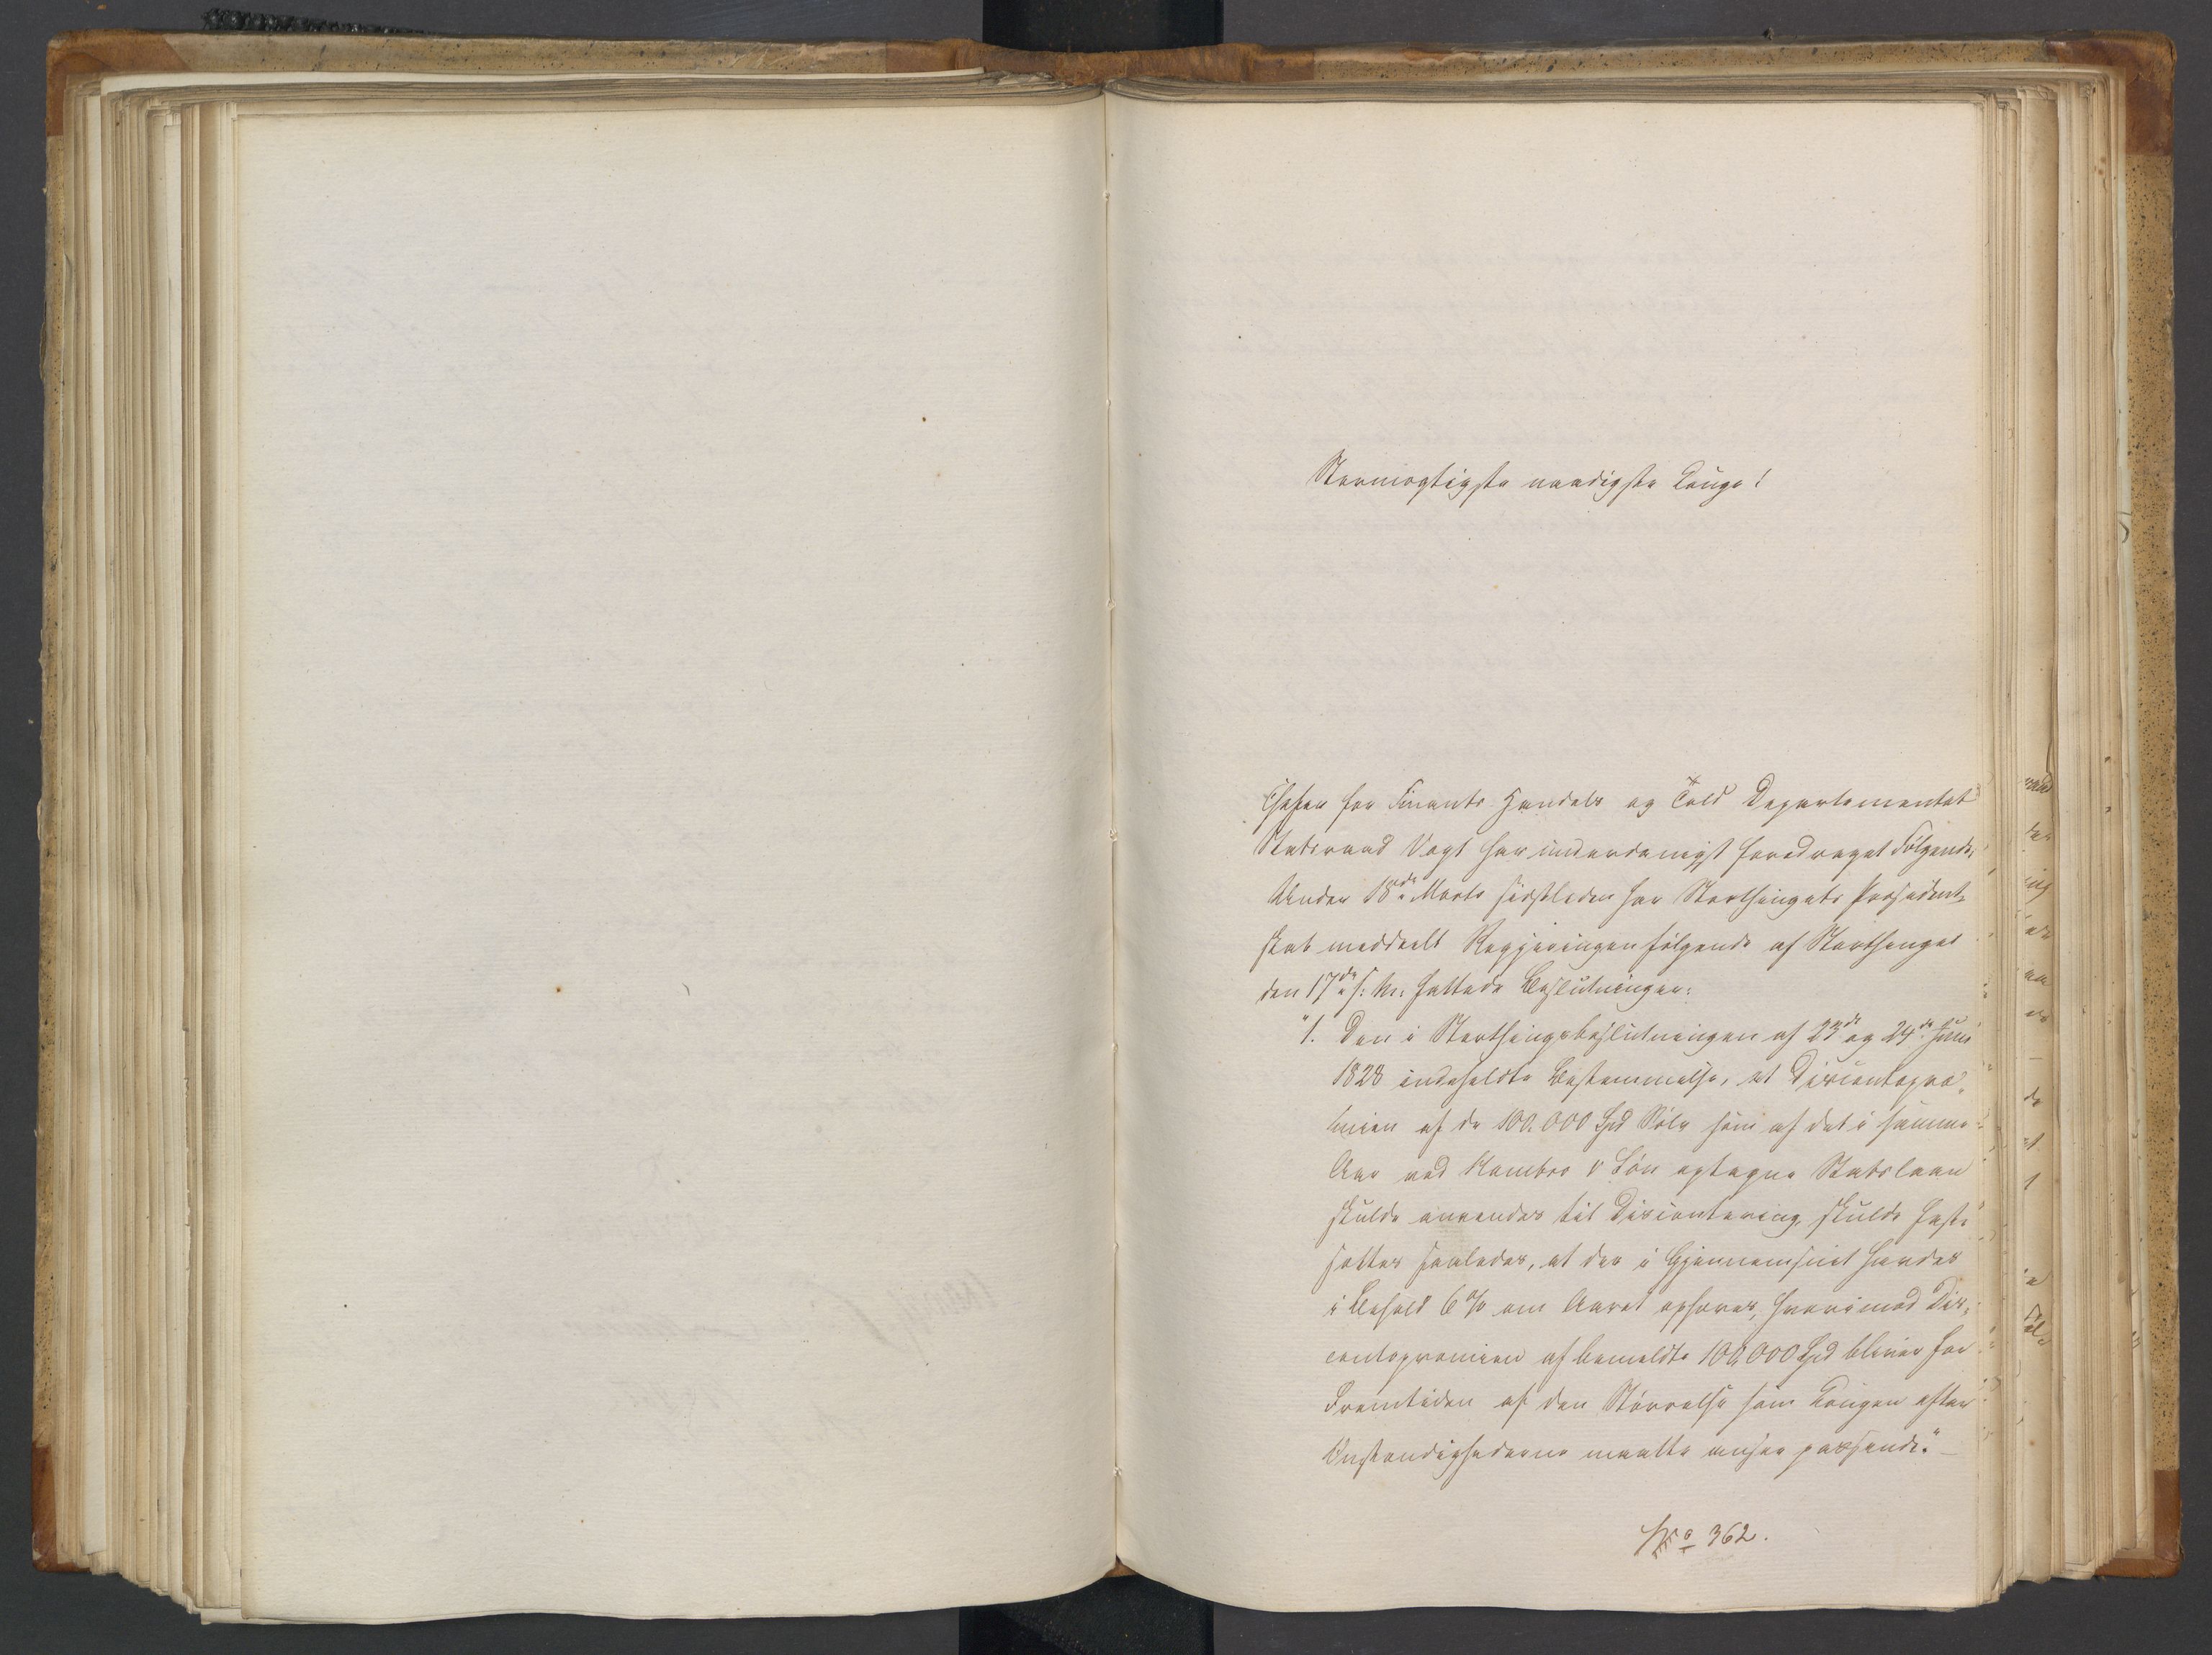 Stormægtigste naadigste Konge!
Chefen for Finants Handels og Told Departementet
Statsraad Vogt har underdanigst foredraget Følgende:
Under 18de Marts sidstleden har Storthingets Præsident-
skab meddeelt Regjeringen følgende af Storthinget
den 17de s: M: fattede Beslutninger:
"1. Den i Storthingsbeslutningen af 23de og 24de Juni
1828 indeholdte Bestemmelse, at Discontopræ-
mien af de 100.000 Spd Sølv som af det i samme
Aar ved Hambro & Søn optagne Statslaan
skulde anvendes til Discontering, skulde fast-
sættes saaledes, at der i Gjennemsnit havdes
i Behold 6 % om Aaret ophører, hvorimod Dis-
contopræmien af bemeldte 100,000 Spd bliver for
Fremtiden af den Størrelse som Kongen efter
Omstændighederne maatte ansee passende." —
No 362.